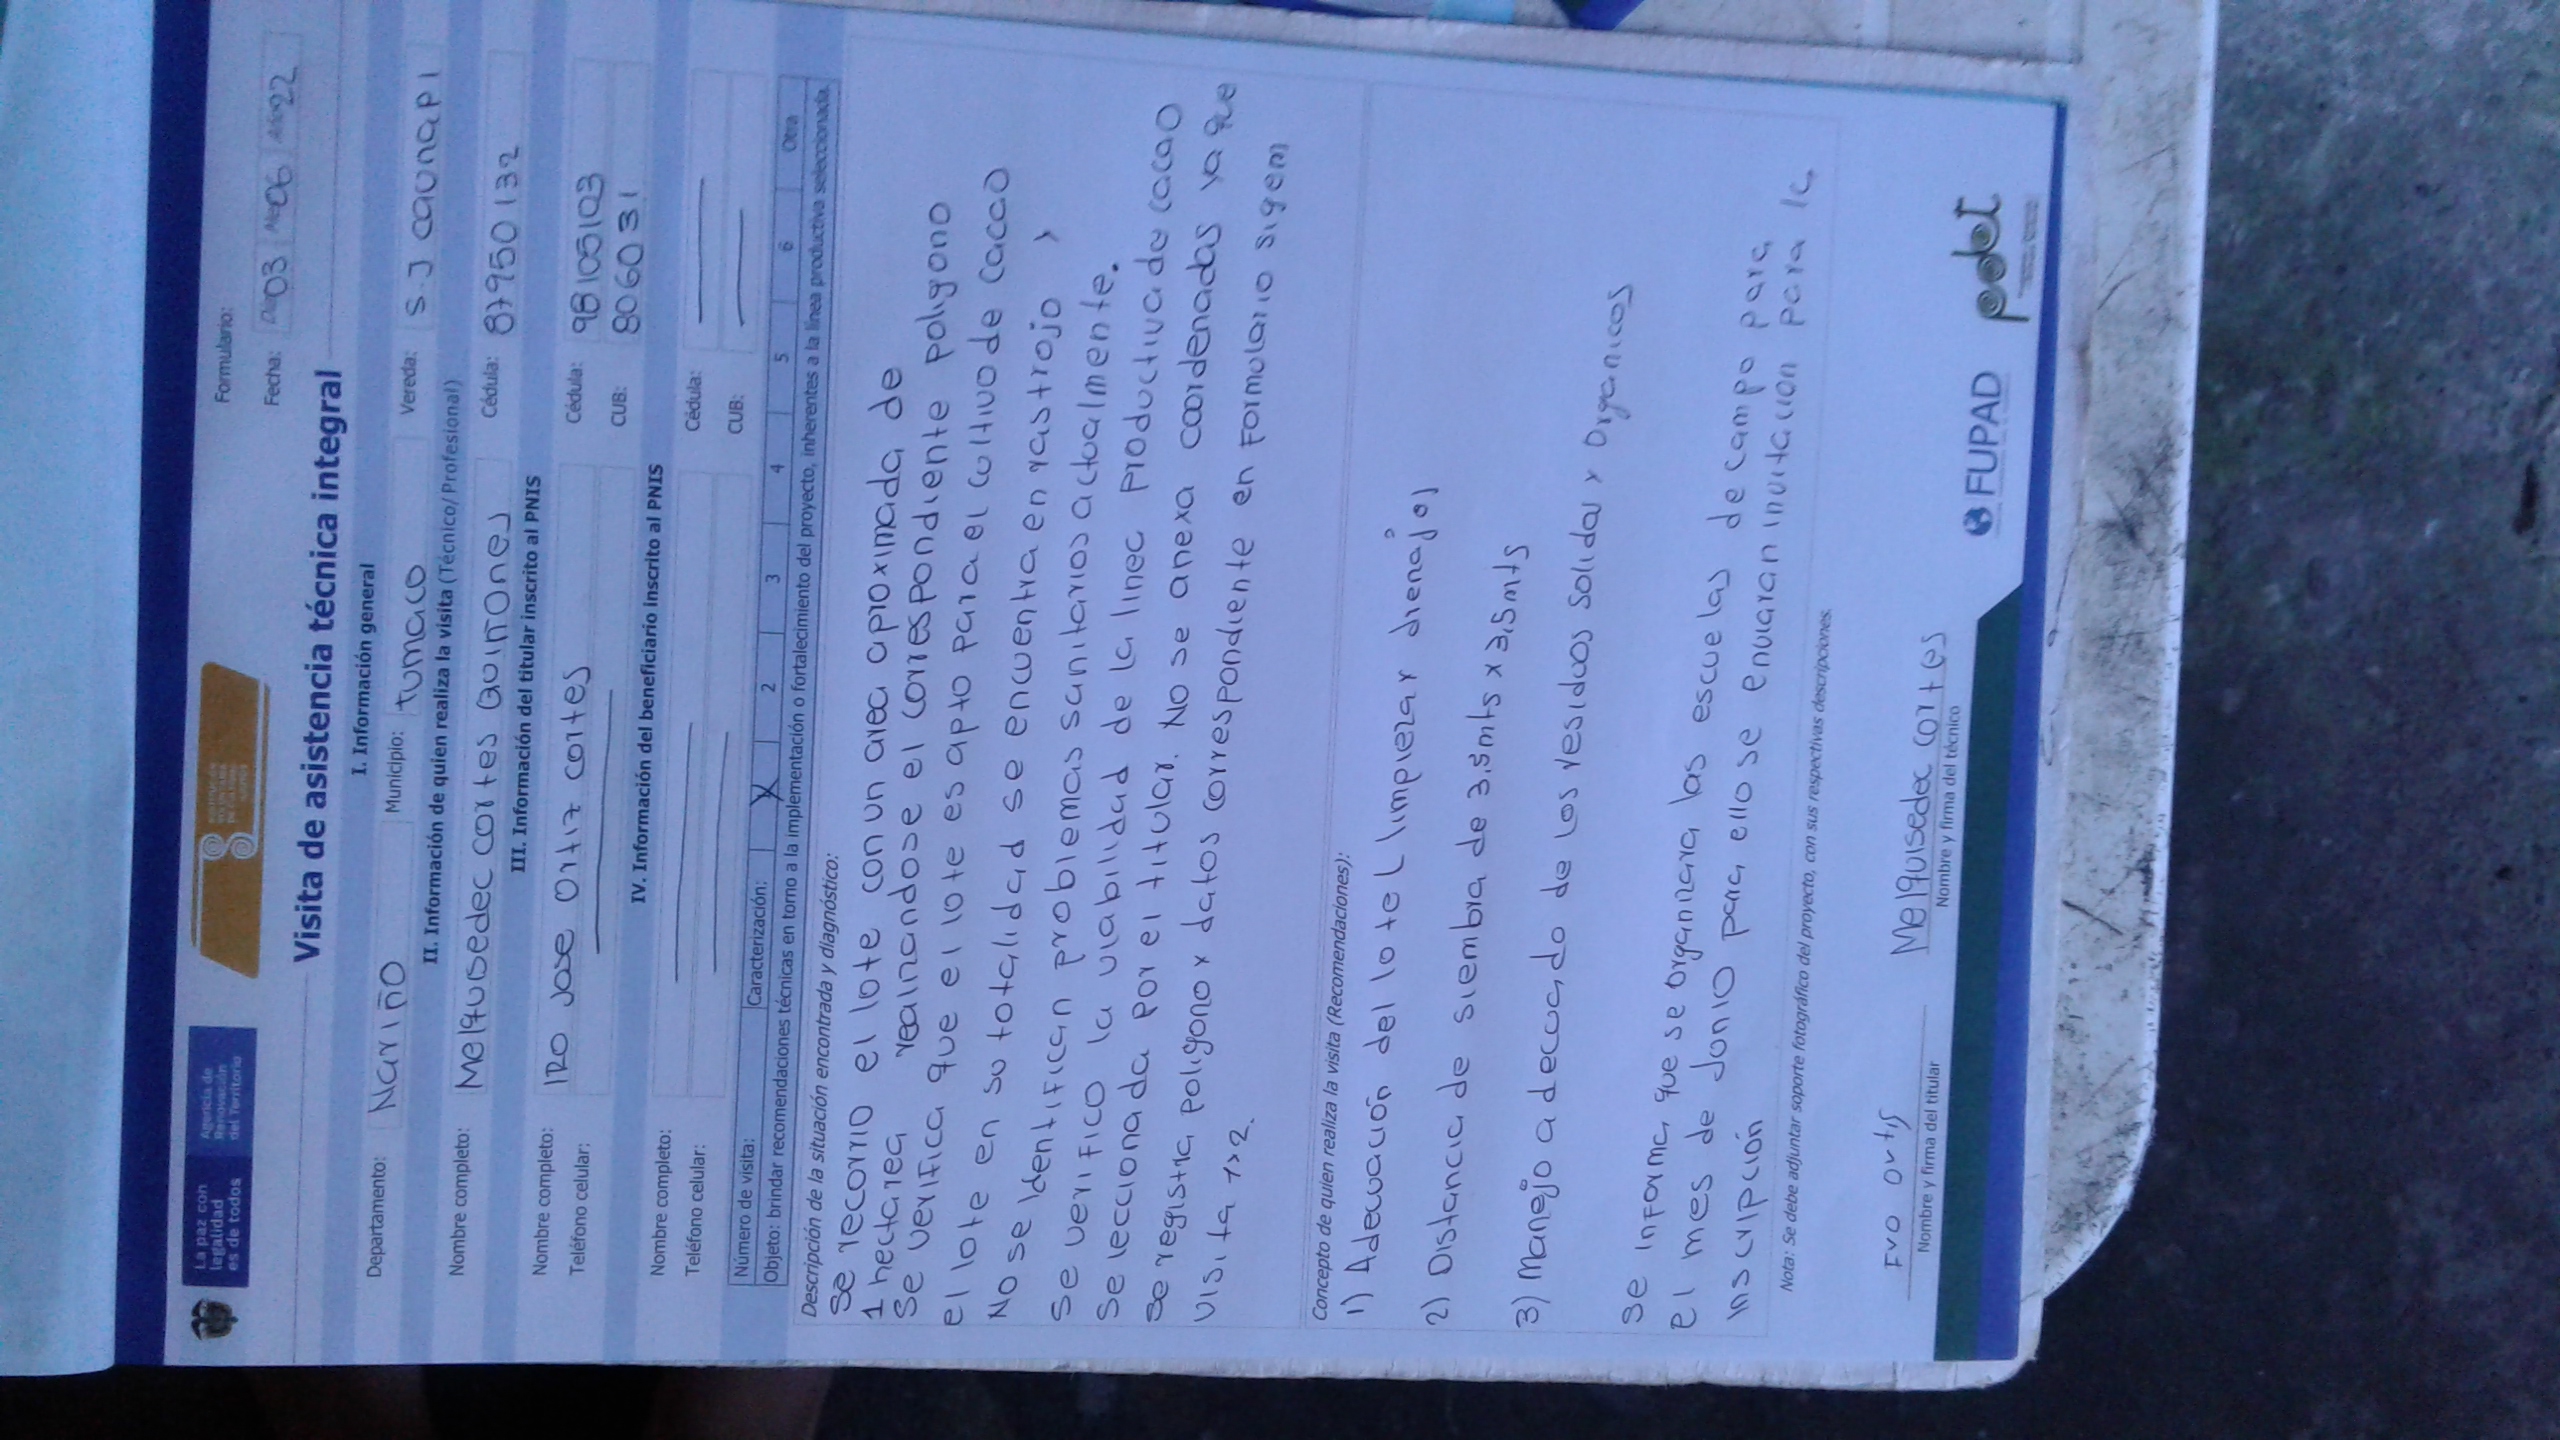 La paz con
legalidad
es de todos
Agencia de
Renovación
del Territorio
Formulario:
Fecha: Día 03 Mes 06 Año 22
Visita de asistencia técnica integral
I. Información general
Departamento: Nariño Municipio: tumaco Vereda: S.J caunapi
II. Información de quien realiza la visita (Técnico/Profesional)
Nombre completo: Melquisedec cortes Quiñones Cédula: 87950132
III. Información del titular inscrito al PNIS
Nombre completo: IRO Jose Ortiz cortes Cédula: 98105103
Teléfono celular: CUB: 806031
IV. Información del beneficiario inscrito al PNIS
Nombre completo: Cédula:
Teléfono celular: CUB:
Número de visita: Caracterización: X 2 3 4 5 6 Otra
Objeto: brindar recomendaciones técnicas en torno a la implementación o fortalecimiento del proyecto, inherentes a la línea productiva seleccionada.
Descripción de la situación encontrada y diagnóstico:
Se recorrio el lote con un area aproximada de
1 hectarea realinandose el correspondiente poligono
Se verifica que el lote es apto para el cultivo de cacao
el lote en su totalidad se encuentra en rastrojo y
No se Identifican problemas sanitarios actualmente.
Se verifico la viabilidad de la linea productiva de cacao
Seleccionada por el titular. No se anexa coordenadas ya que
Se registra poligono y datos correspondiente en Formulario sigem
Visita 1x2.
Concepto de quien realiza la visita (Recomendaciones):
1) Adecuación del lote Limpiezar drenajes
2) Distancia de siembra de 3.5mts x 3,5mts
3) Manejo adecuado de los residuos solidos y Organicos
Se informa que se organizara las escuelas de campo para
el mes de Junio para ello se enviaran invitacion para la
inscripción
Nota: Se debe adjuntar soporte fotográfico del proyecto, con sus respectivas descripciones.
Iro Ortis
Nombre y firma del titular
Melquisedec cortes
Nombre y firma del técnico
FUPAD
pdet